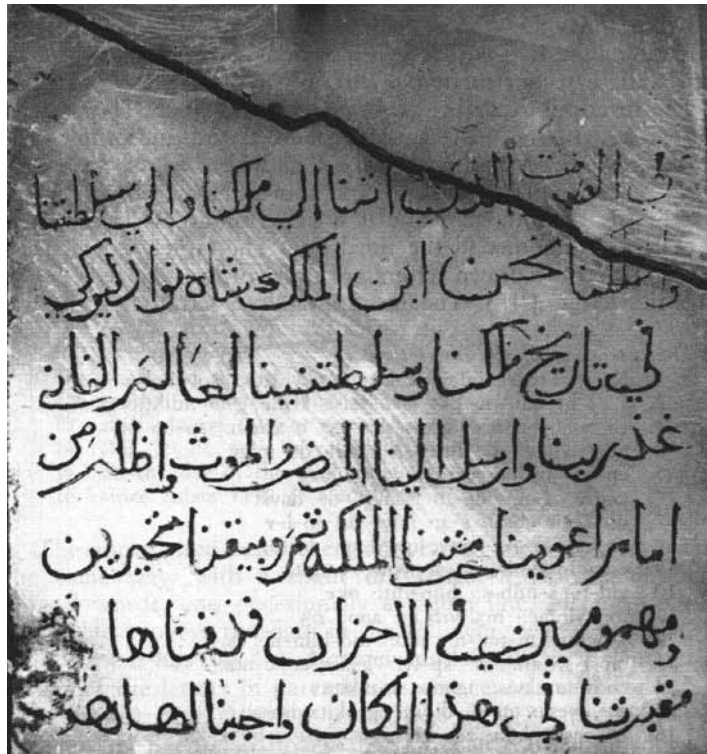 في الصمت المذهب اتتنا إلي مملكنا والي سلطتنا
نحن ابن الملك شاه نواز
في تاريخ مملكنا وسلطتنينا لعالم الثاني
غذربنا وارسل الينا المرض والموت واظلم من
امام اعوينا حت متنا الملكه ثم وبيقنا مخيرين
ومهمومين في الاحزان فدفناها
مقبرتنا في هذا المكان واجبنا لها هد